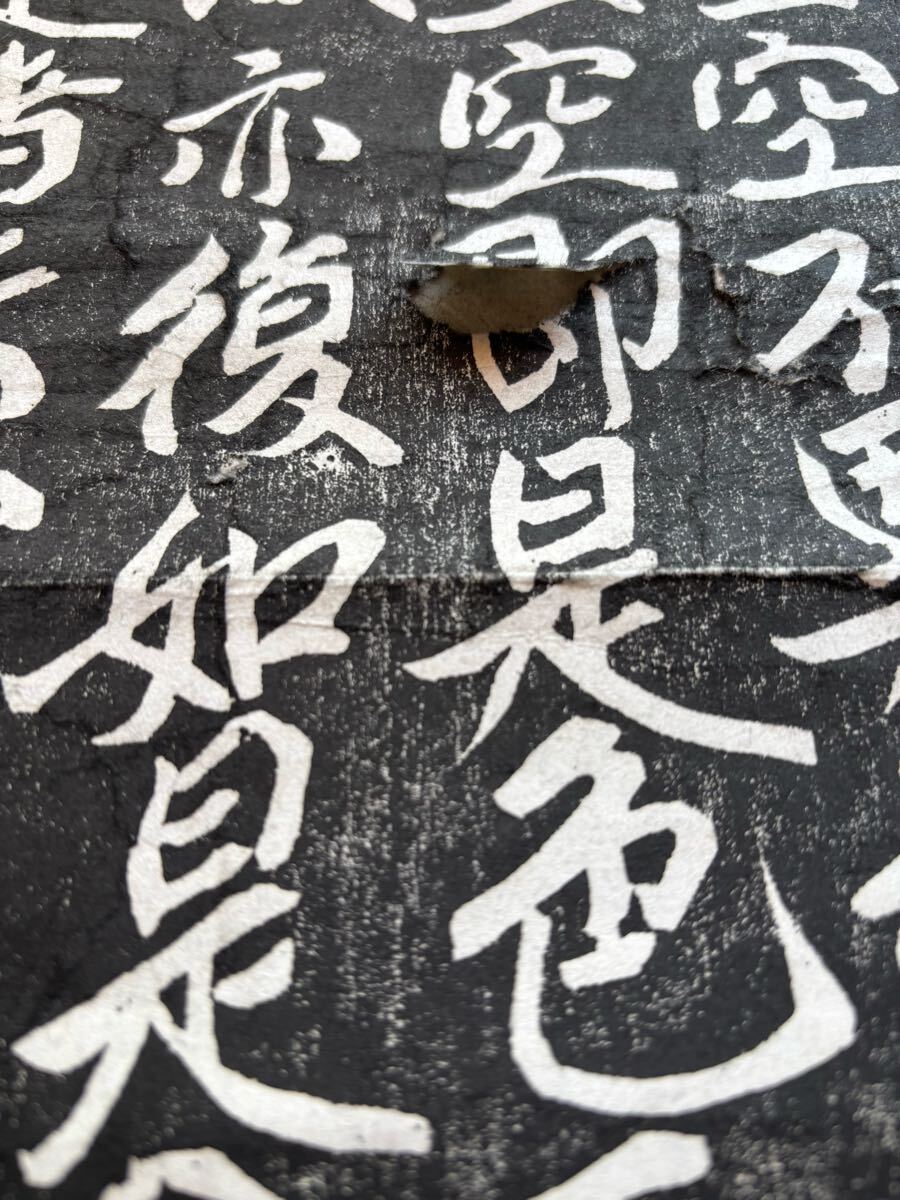 空不異
空即是色
亦復如是